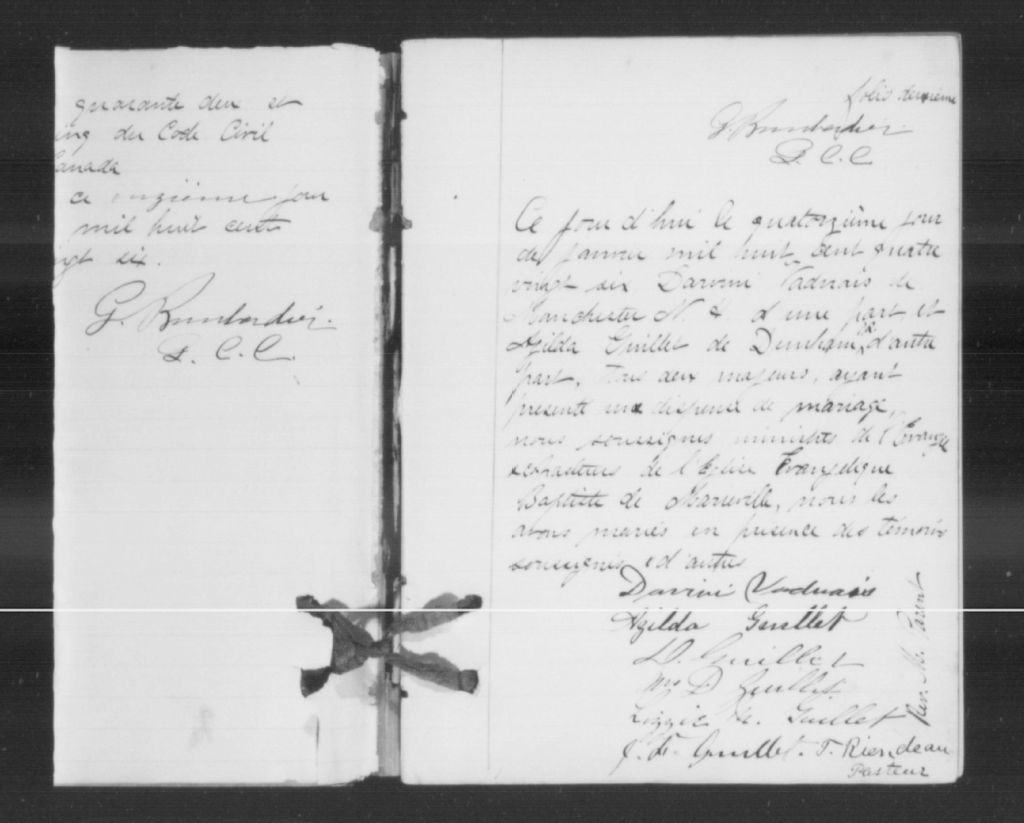 quarante deux et
du Code Civil
Canada
ce onzième jour
mil huit cent
six.
G. Bombardier.
P. C. C.
folio deuxième
G. Bombardier
P. C. C
Ce jour d'hui le quatorzième jour
de janvier mil huit cent quatre
vingt six Darvini Vadnais de
Manchester N. H. d'une part et
Azilda Guillet de Dunham, d'autre
part, tous deux majeurs, ayant
présenté une dispense de mariage,
nous soussignés ministres de l'Evangile
pasteurs de l'Eglise Evangélique
Baptiste de Marieville, nous les
avons mariés en présence des témoins
soussignés et d'autres
Darvini Vadnais
Azilda Guillet
D. Guillet
Mrs D Guillet
Lizzie H. Guillet
J. H. Guillet. T. Riendeau
Pasteur
Rev. M. Parent